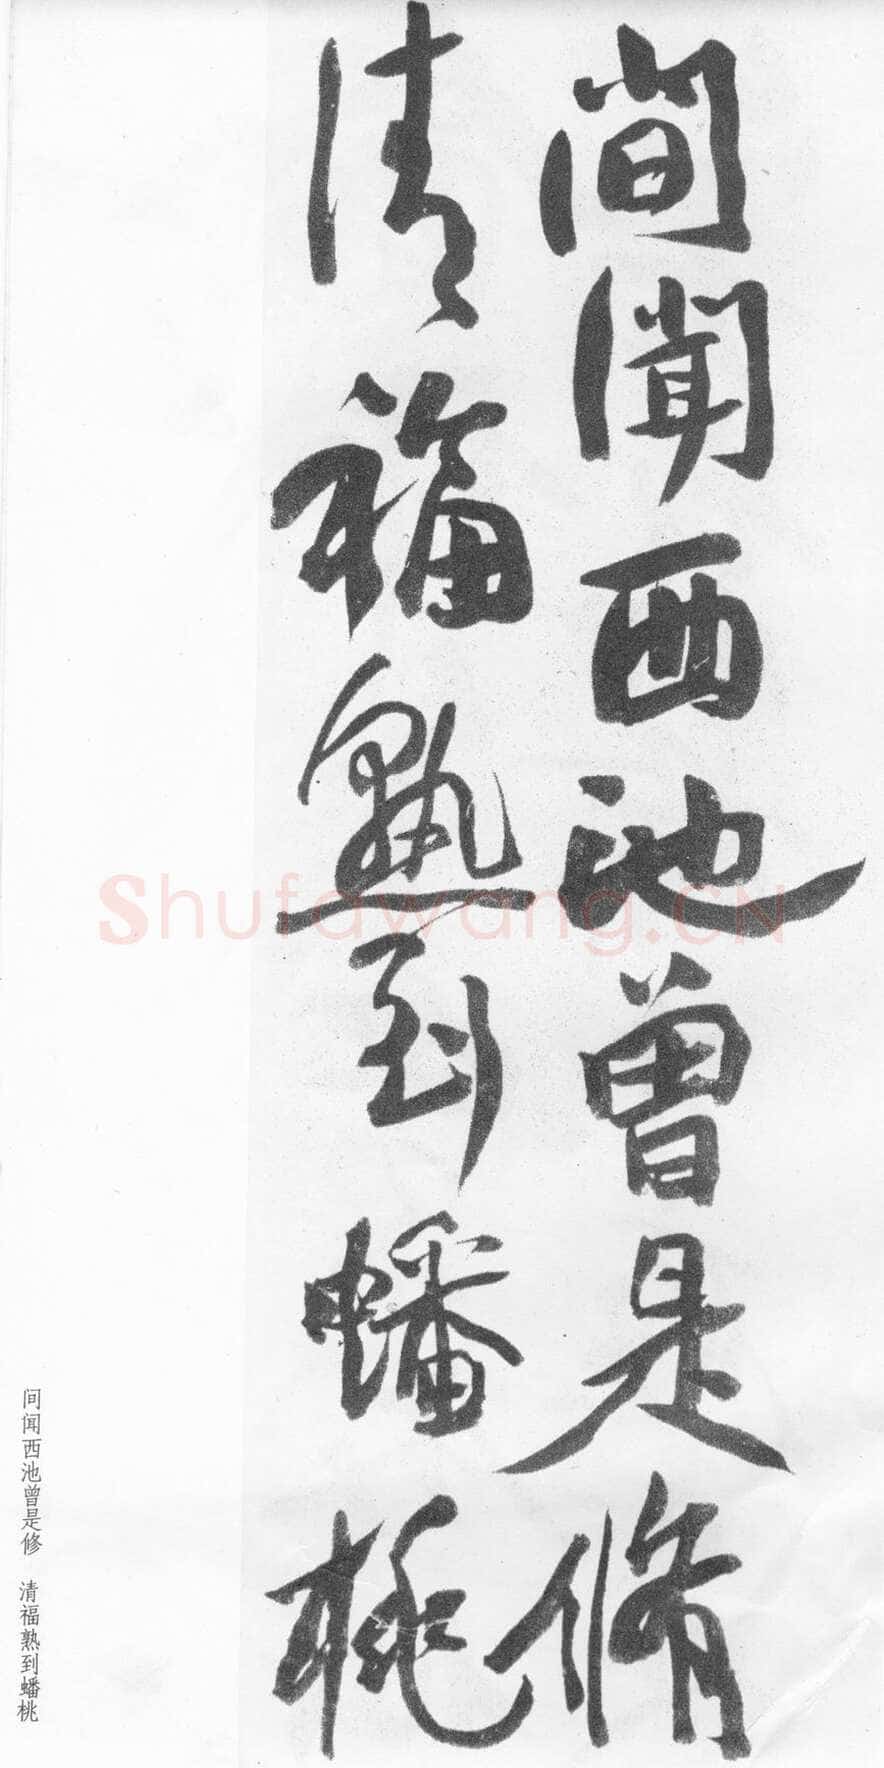 間聞西池曾是脩
清福熟到蟠桃
间闻西池曾是修 清福熟到蟠桃
Shufawang.CN